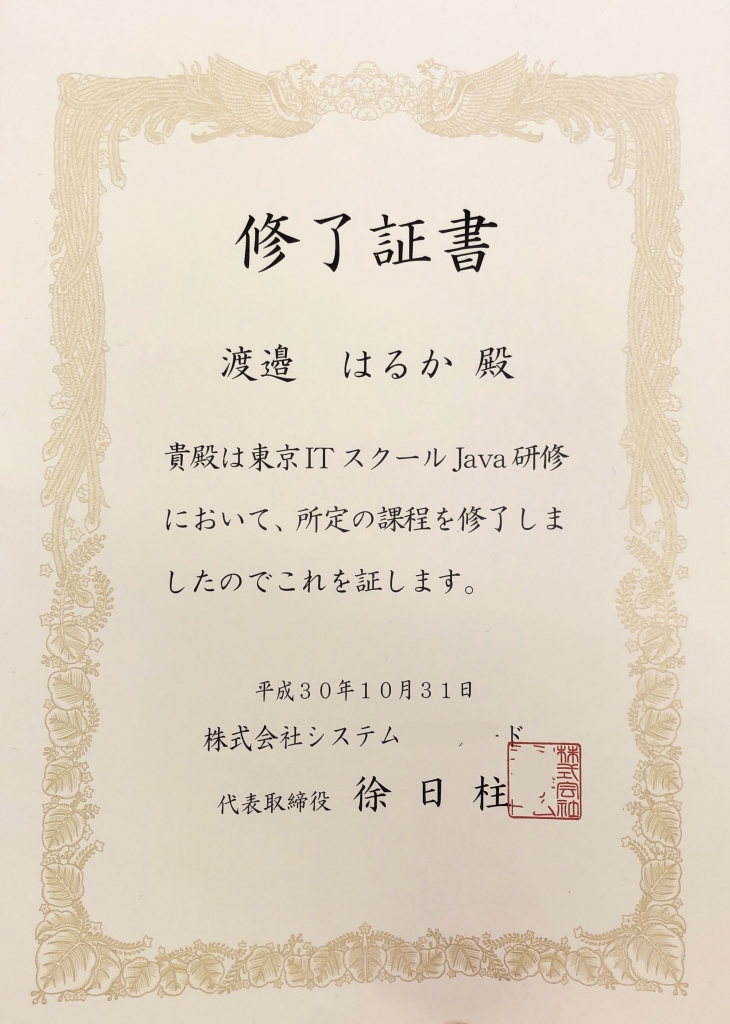 修了証書
渡邉 はるか 殿
貴殿は東京ITスクールJava研修
において、所定の課程を修了しま
したのでこれを証します。
平成30年10月31日
株式会社システム ド
代表取締役 徐日柱
株式会社